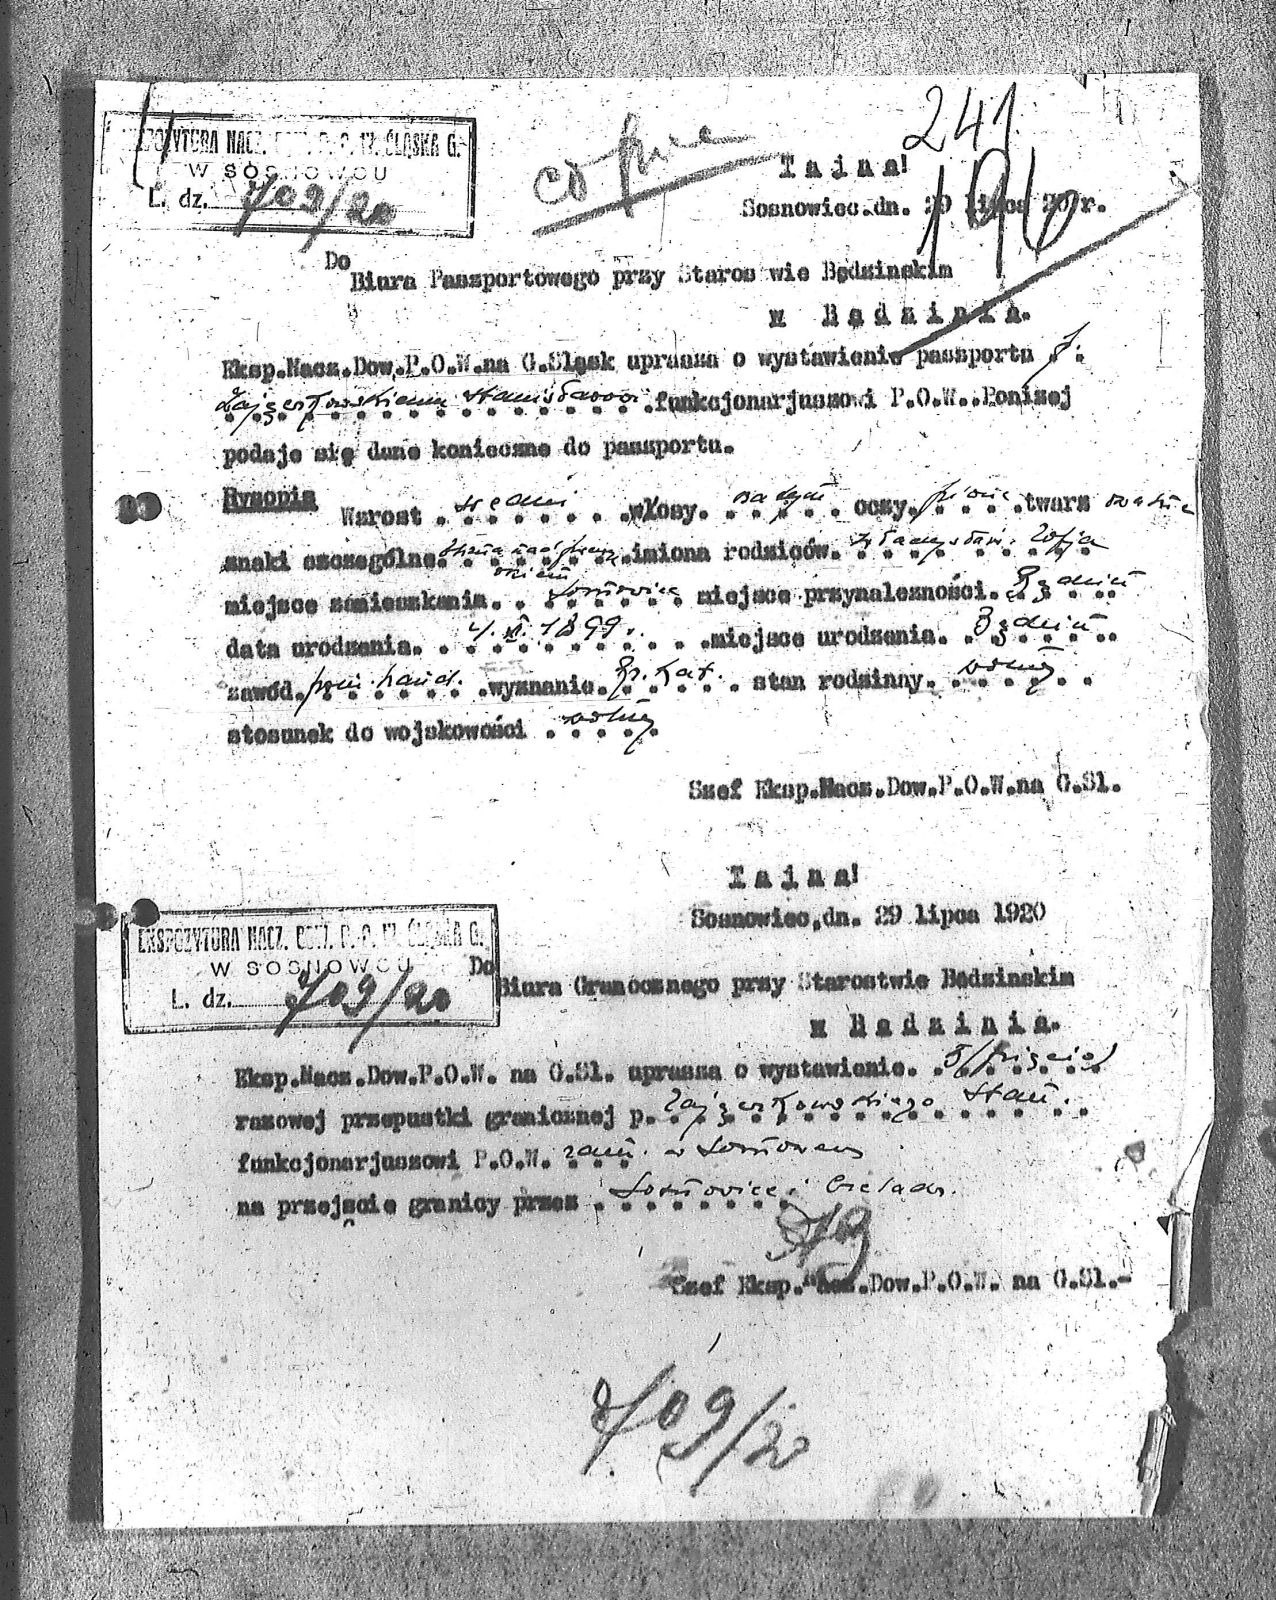 241
196
EKSPOZYTURA NACZ. DOW. P. O. W. ŚLĄSKA G.
W SOSNOWCU
L. dz. 709/20
Tajna!
Sosnowiec.dn. 29 lipca 20 r.
Do
Biura Paszportowego przy Staros wie Będzinskim
w Będzinie.
Eksp.Nacz.Dow.P.O.W.na G.Sląsk uprasza o wystawienie passportu p.
Zajączkowskiemu Stanisławowi funkcjonarjuszowi P.O.W..Poniżej
podaje się dane konieczne do passportu.
Rysopis
Wzrost średni włosy. blondyn oczy. piwne twarz owalna
znaki szczególne. imiona rodziców. Władysław. Zofja
okiem
miejsce zamieszkania. Sosnowiec miejsce przynależności. Będzin
data urodzenia. 4. XI. 1899. miejsce urodzenia. Będzin
zawód. pom. hand. wyznanie. Rz. Kat. stan rodzinny. wolny
stosunek do wojskowości wolny
Szef Eksp.Nacz.Dow.P.O.W.na G.Sl.
Tajna!
Sosnowiec,dn. 29 lipca 1920
EKSPOZYTURA NACZ. DOW. P. O. W. ŚLĄSKA G.
W SOSNOWCU
L. dz. 709/20
Do
Biura Granocznego przy Starostwie Będzinskim
w Będzinie.
Eksp.Nacz.Dow.P.O.W. na G.Sl. uprasza o wystawienie. 5/pięcio/
razowej przepustki granicznej p. Zajączkowskiego Stan.
funkcjonarjuszowi P.O.W. zam. w Sosnowcu
na przejscie granicy przez Sosnowiec i Czeladź.
Szef Eksp.Nacz.Dow.P.O.W. na G.Sl.-
709/20